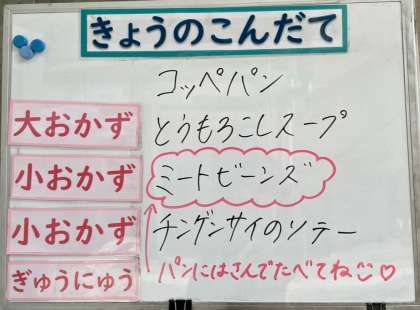 きょうのこんだて
コッペパン
大おかず とうもろこしスープ
小おかず ミートビーンズ
小おかず チンゲンサイのソテー
ぎゅうにゅう パンにはさんでたべてね